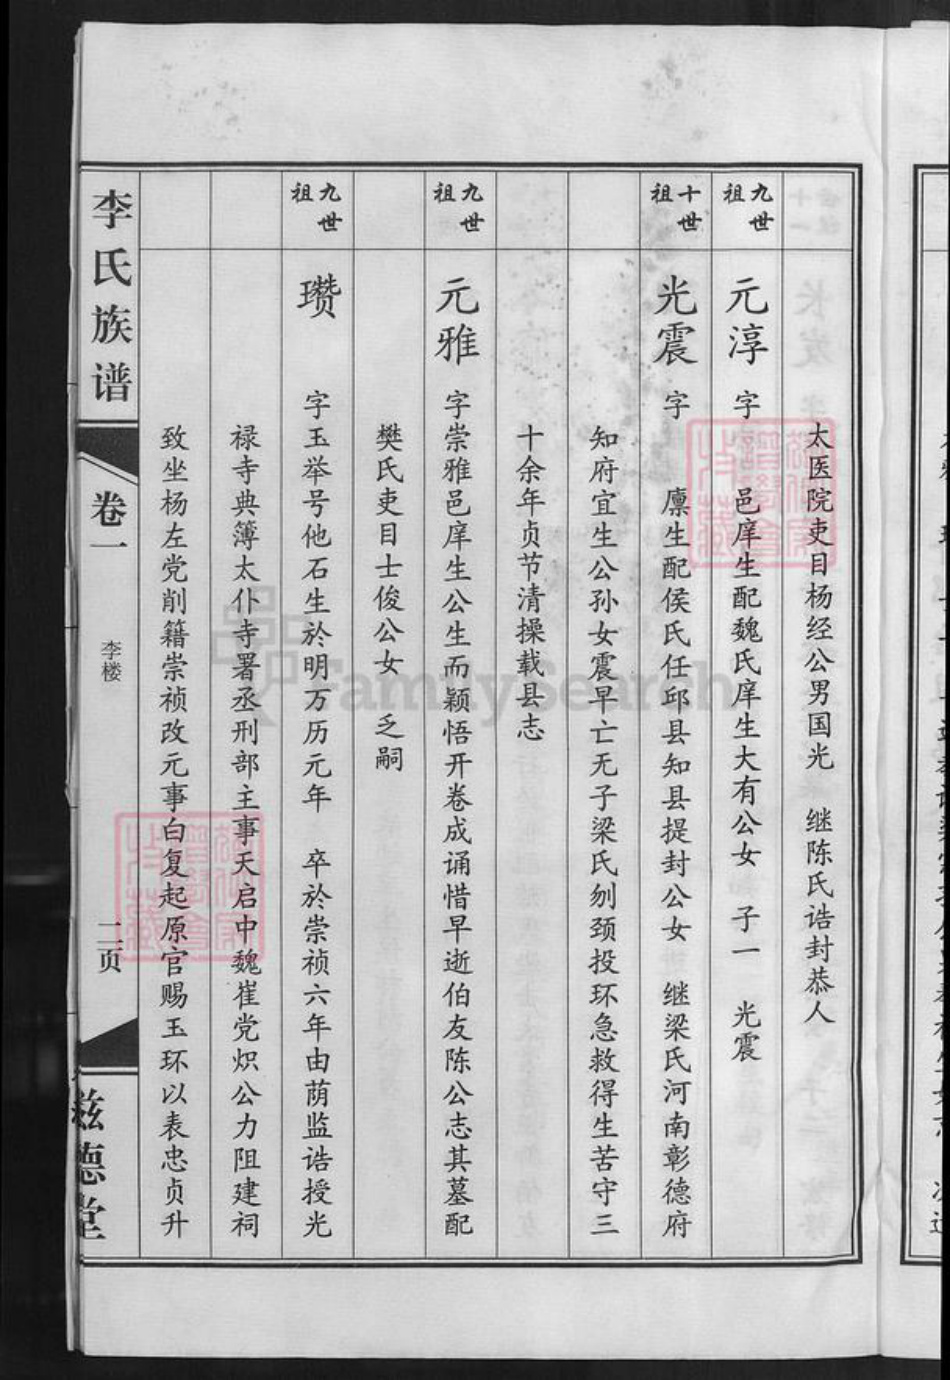 太医院吏目杨经公男国光 继陈氏诰封恭人
九世祖 元淳 字 邑庠生配魏氏庠生大有公女 子一 光震
十世祖 光震 字 廪生配侯氏任邱县知县提封公女 继梁氏河南彰德府
知府宜生公孙女震早亡无子梁氏刎颈投环急救得生苦守三
十余年贞节清操载县志
九世祖 元雅 字崇雅邑庠生公生而颖悟开卷成诵惜早逝伯友陈公志其墓配
樊氏吏目士俊公女 乏嗣
九世祖 瓒 字玉举号他石生於明万历元年 卒於崇祯六年由荫监诰授光
禄寺典簿太仆寺署丞刑部主事天启中魏崔党炽公力阻建祠
致坐杨左党削籍崇祯改元事白复起原官赐玉环以表忠贞升
李氏族谱
卷一
李楼
页
兹德堂
FamilySearch